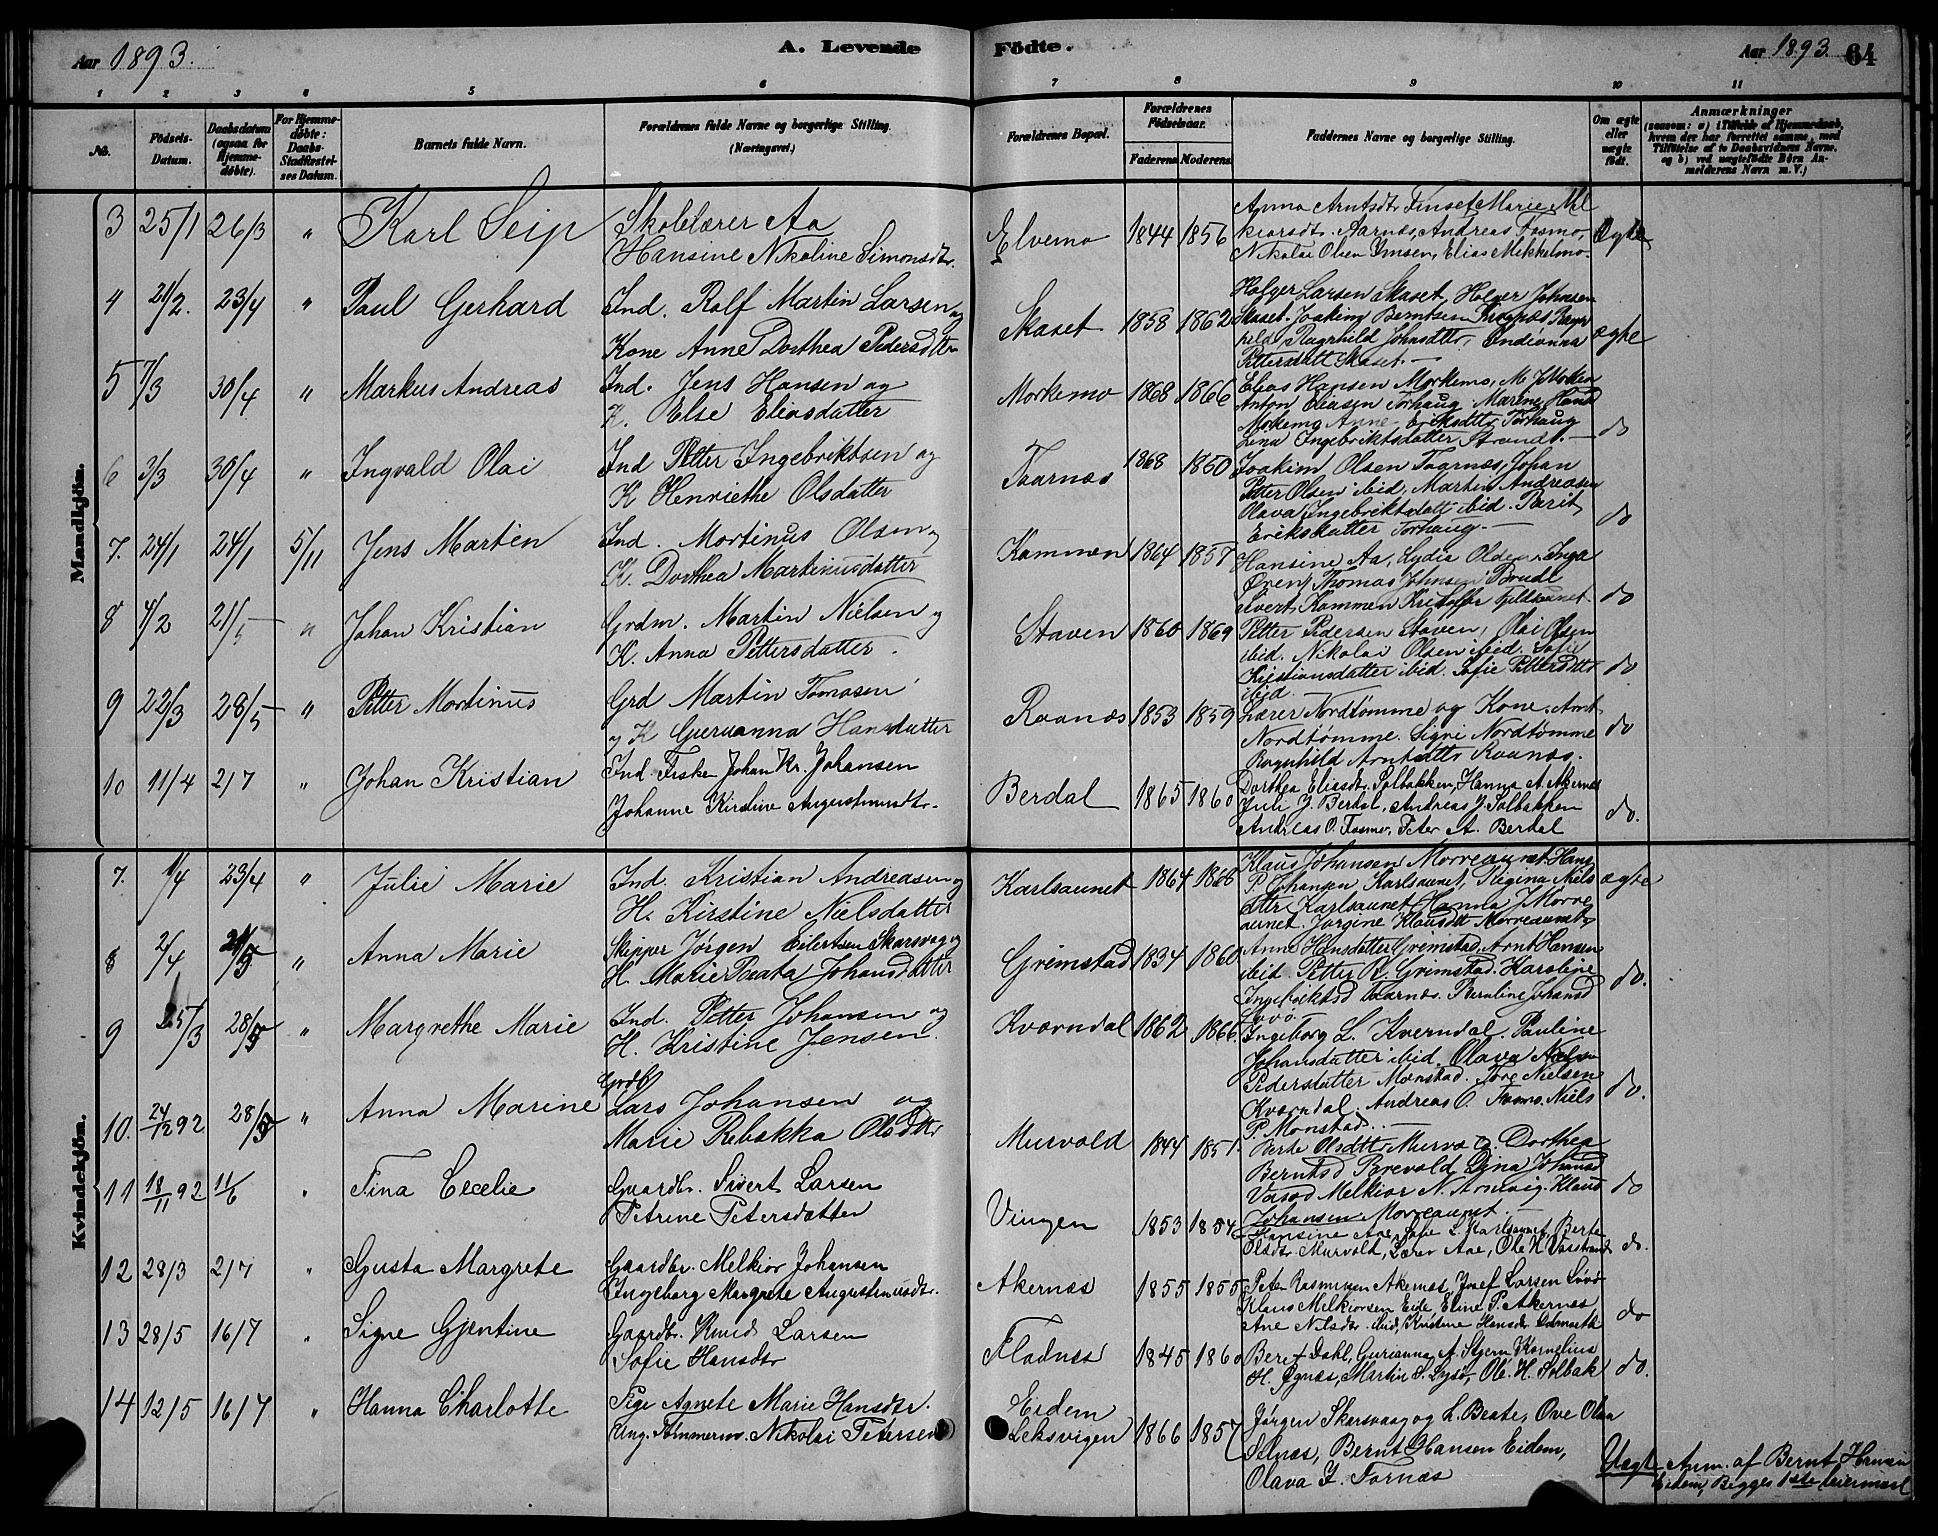 Aar 1893. A. Levende Fødte. Aar 1893. 64
1 2 3 4 5 6 7 8 9 10 11
No.
Fødsels-
Datum.
Daabsdatum
(ogsaa for
Hjemme-
døbte).
For Hjemme-
døbte:
Daabs-
Stadfæstel-
ses Datum.
Barnets fulde Navn.
Forældrenes fulde Navne og borgerlige Stilling.
(Næringsvei.)
Forældrenes Bopæl.
Forældrenes
Fødselsaar.
Faderens Moderens
Faddernes Navne og borgerlige Stilling.
Om ægte
eller
uægte
født.
Anmærkninger
(saasom: a) i Tilfælde af Hjemmedaab,
hvem der har forrettet samme, med
Tilføielse af to Daabsvidners Navne,
og b) ved uægtefødte Børn An-
melderens Navn m. V.)
Mandkjøn.
3 25/1 26/3 " Karl Seip
Skolelærer Aa
Hansine Nikoline Simonsdtr.
Elvemo 1844 1856
Anna Arntsdtr Finset Marie Mel
kiorsdtr. Aarnæs, Andreas Fosmo,
Nikolai Olsen Ymsen, Elias Mikkelmo.
Ægte
4 21/2. 23/4 " Paul Gerhard
Ind. Rolf Martin Larsen og
Kone Anne Dorthea Pedersdatter
Skaset 1858 1862
Holger Larsen Skaset, Holger Johnsen
Skaset. Joakim Berntsen
Ragnhild Johnsdtr,
Pettersdatt Skaset.
ægte
5 7/3 30/4 " Markus Andreas
Ind. Jens Hansen og
K. Else Eliasdatter
Morkemo 1868 1866
Elias Hansen Morkemo, M J Morkem
Anton Eliasen Torhaug. Marene Hansd
Morkemo Anne Eriksdtr Torhaug
Lena Ingebriktsdatter Strandt.
do
6 3/3 30/4 " Ingvald Olai
Ind Petter Ingebriktsen og
K Henriethe Olsdatter
Taarnæs 1868 1860
Joakim Olsen Taarnæs, Johan
Petter Olsen ibid, Martin Andreasen
Olava Ingebriktsdatt ibid. Berit
Eriksdatter Torhaug.
do
7. 24/1 24/1 5/11 Jens Martin
Ind. Mortinus Olsen og
K. Dorthea Martinusdatter
Kammen 1864 1857
Hansine Aa, Lydia Olsen, Inga
Øren, Thomas Johnsen
Sivert Kammen Kristoffer
do
8 4/2 21/5 " Johan Kristian
Grdm. Martin Nielsen og
K. Anna Pettersdatter.
Staven 1860 1869
Petter Pedersen Staven, Olai Olsen
ibid. Nikolai Olsen ibid. Sofie
Kristiansdatter ibid. Sofie Petterdatt
ibid.
do
9 22/3 28/5 " Petter Mortinus
Grd Martin Tomasen
og K Gjeruanna Hansdatter
Raanæs 1853 1859
Lærer Nordtømme og Kone, Arnt
Nordtømme. Signi Nordtømme
Ragnhild Arntsdtr Raanæs.
do
10 11/4 2/7 " Johan Kristian
Ind. Fisker Johan Kr. Johansen
Johanne Kirstine Augustinusdtr.
Berdal 1865 1860
Dorthea Eliasdtr. Solbakken, Hanna A. Akernæs
Juli J. Berdal, Andreas J. Solbakken
Andreas O. Fosmo, Peter A. Berdal
do.
Kvindekjøn.
7. 1/4 23/4 " Julie Marie
Ind. Kristian Andreasen og
H. Kirstine Nielsdatter
Karlsaunet 1864 1868
Klaus Johansen Morreaunet. Hans
P. Johansen Karlsaunet, Regina Niels
datter Karlsaunet Hanna J Morre
aunet. Jørgine Klausdtt Morreaunet
ægte
8 2/4 21/5 " Anna Marie
Skipper Jørgen Eilertsen Skarsvag og
H. Marie Beata Johansdatter
Grimstad 1834 1860
Anne Hansdatter Grimstad. Arnt Hansen
ibid. Petter R. Grimstad. Karoline
Ingebriktsd Taarnæs. Beraline Johansd
Lovø.
do.
9 25/3 28/5 " Margrethe Marie
Ind. Petter Johansen og
H. Kristine Jensen.
Kværndal 1862 1866.
Ingeborg L. Kverndal. Pauline
Johansdatter ibid. Olava
Pedersdatter Monstad. Tore Nielsen
Kværndal. Andreas O. Fosmo. Niels
P. Monstad.
do.
10. 24/12 92 28/5 " Anna Marine
Grdb
Lars Johansen og
Marie Rebekka Olsdtr
Murvold 1844 1851.
Berte Olsdtt Murvo og Dorthea
Berntsd Borevold Dina Johansd
Vasod Melkior N. Arnevig. Klaus
Johansen Morreaunet.
do
11 18/11 92 11/6 " Tina Cecelie
Gaardbr. Sivert Larsen
Petrine Petersdatter
Vingen 1853 1854
Hansine Aae, Sofie L. Karlsaunet, Berte
Olsdtr Murvold, Lærer Aae, Ole N. Vasstrand
do.
12 28/3 2/7 " Gusta Margrete
Gaardbr. Melkior Johansen
Ingeborg Margrete Augustinusdtr.
Akernæs 1855 1855
Peter Rasmussen Akernæs, Josef Larsen Lovø
Klaus Melkiorsen Eide, Eline P. Akernæs
Ane Nilsdtr. ibid, Kristine Hansdtr
do
13 28/5 16/7 " Signe Gjentine
Gaardbr. Knud Larsen
Sofie Hansdtr
Fladnæs 1845 1860
Beret Dahl, Gurianna A. Stjern Kornelius
H. Øgnæs, Martin S. Lysø, Ole H. Solbak
do.
14 12/5 16/7 " Hanna Charlotte
Pige Agnete Marie Hansdtr.
Ung. Tømmerm. Nikolai Petersen
Eidem
Leksvigen 1866 1857
Jørgen Skarsvaag og h. Beate, Ove Olsa
Selnæs, Bernt Hansen Eidem,
Olava J. Tornæs
Uægte Anm. af Bernt Hansen
Eidem, Begges 1ste Leiermaal